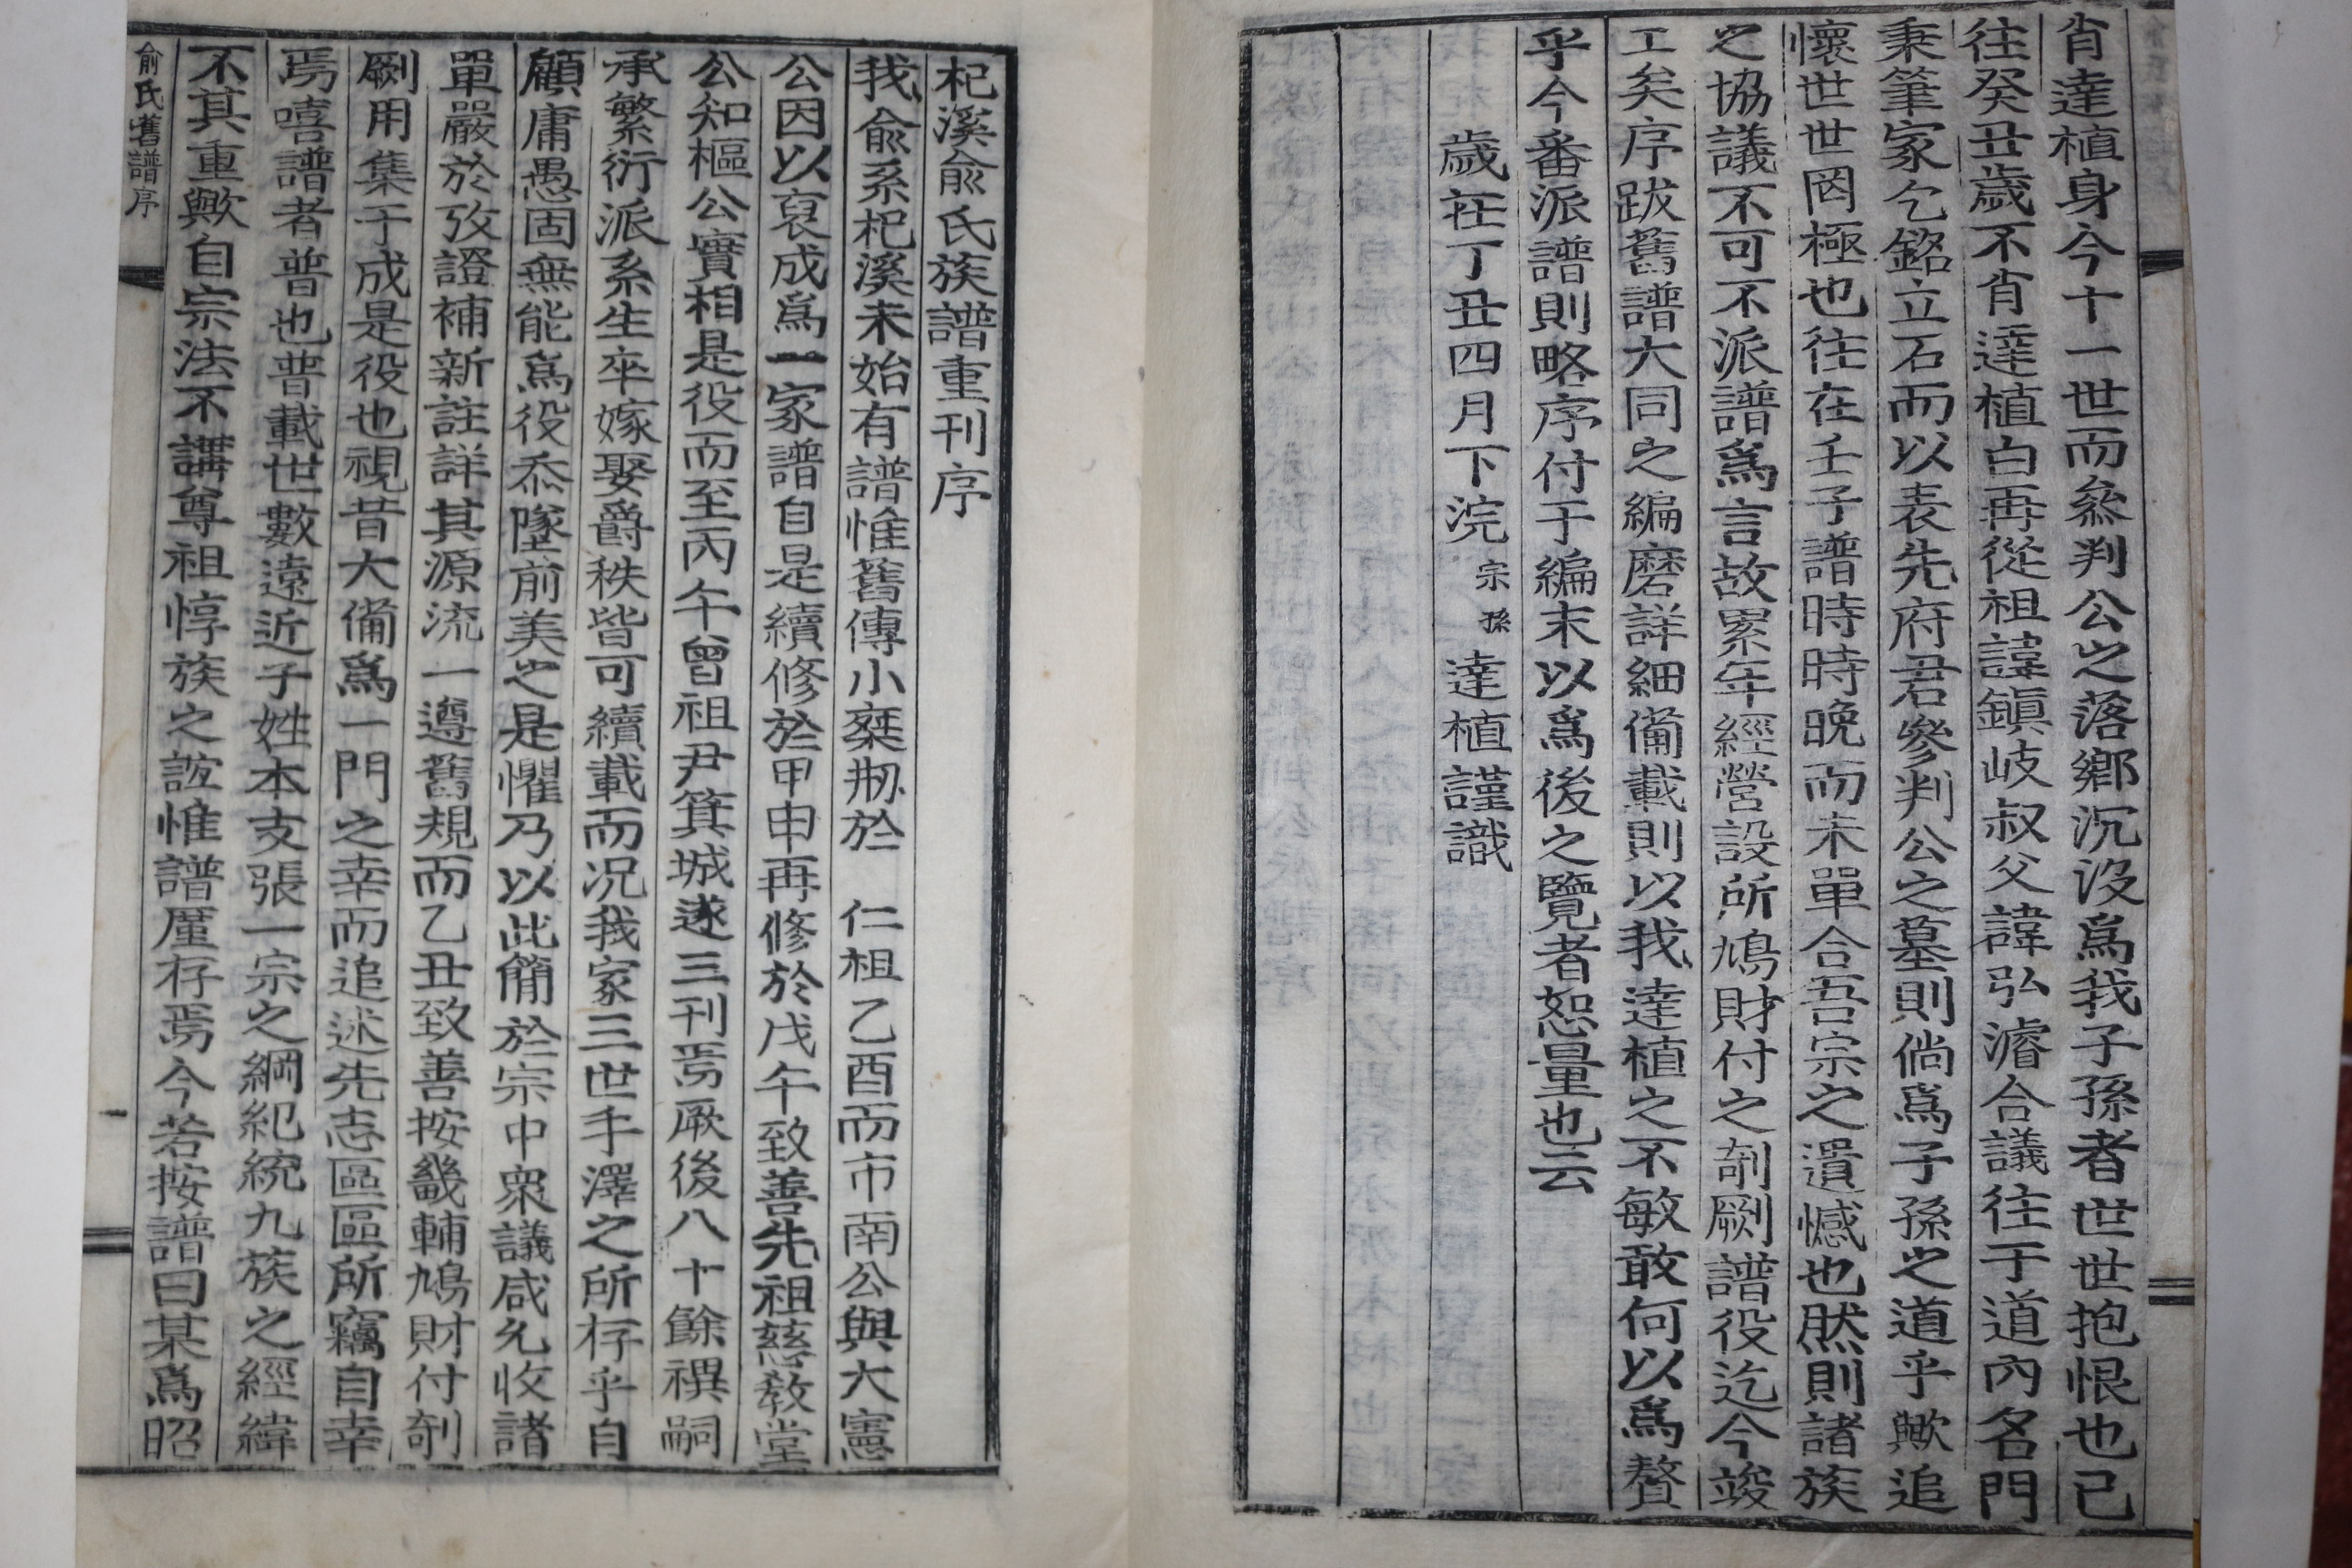 肯達植身今十一世而叅判公之落鄕沉沒爲我子孫者世世抱恨也已
往癸丑歲不肯達植白再從祖諱鎭岐叔父諱弘濬合議往于道內名門
秉筆家乞銘立石而以表先府君參判公之墓則倘爲子孫之道乎歟追
懷世世罔極也往在壬子譜時時晩而未單合吾宗之遺憾也然則諸族
之協議不可不派譜爲言故累年經營設所鳩財付之剞劂譜役迄今竣
工矣序跋舊譜大同之編磨詳細備載則以我達植之不敏敢何以爲贅
乎今番派譜則略序付于編末以爲後之覽者恕量也云
歲在丁丑四月下浣 宗孫 達植謹識
杞溪兪氏族譜重刊序
我兪系杞溪未始有譜惟舊傳小弆刱於 仁祖乙酉而市南公與大憲
公因以裒成爲一家譜自是續修於甲申再修於戊午致善先祖慈敎堂
公知樞公實相是役而至丙午曾祖尹箕城遂三刊焉厥後八十餘禩嗣
承繁衍派系生卒嫁娶爵秩皆可續載而況我家三世手澤之所存乎自
顧庸愚固無能爲役忝墜前美之是懼乃以此簡於宗中衆議咸允收諸
單嚴於攷證補新註詳其源流一遵舊規而乙丑致善按畿輔鳩財付剞
劂用集于成是役也視昔大備爲一門之幸而追述先志區區所竊自幸
焉嘻譜者普也普載世數遠近子姓本支張一宗之綱紀統九族之經緯
不其重歟自宗法不講尊祖惇族之誼惟譜厪存焉今若按譜曰某爲昭
兪氏舊譜序
一